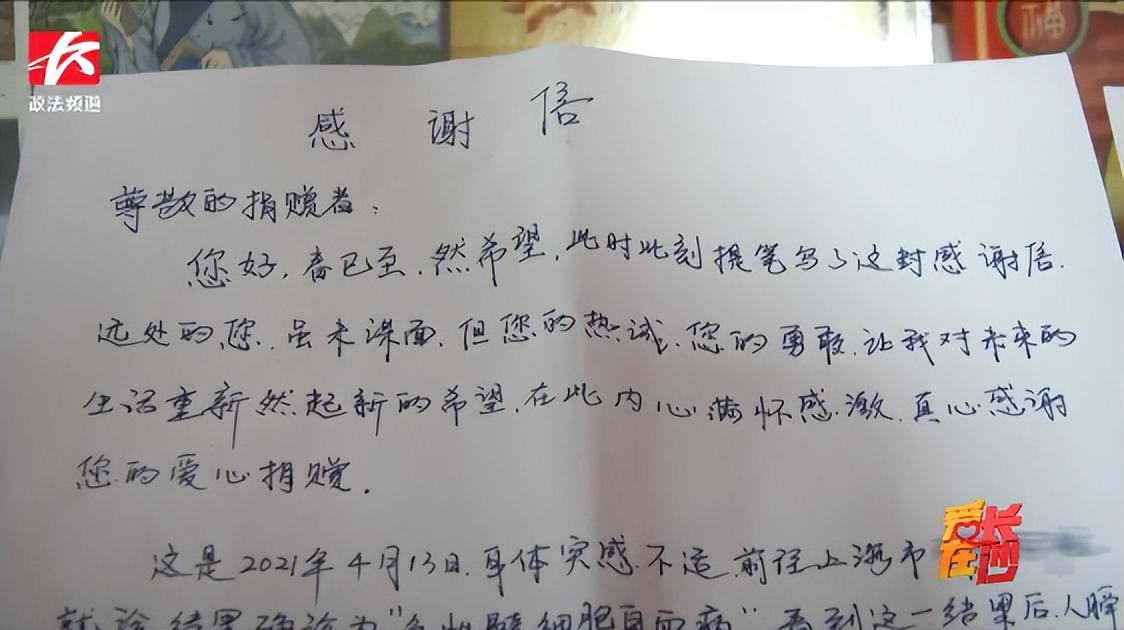 政法频道
福
感谢信
尊敬的捐赠者：
您好，春已至，然希望，此时此刻提笔写了这封感谢信.
远处的您，虽未谋面，但您的热诚，您的勇敢，让我对未来的
生活重新然起新的希望，在此内心满怀感激，真心感谢
您的爱心捐赠.
这是2021年4月13日，身体突感不适，前往上海市
就诊结果确诊为"急性髓细胞白血病"看到这一结果后，人瞬
爱在长沙